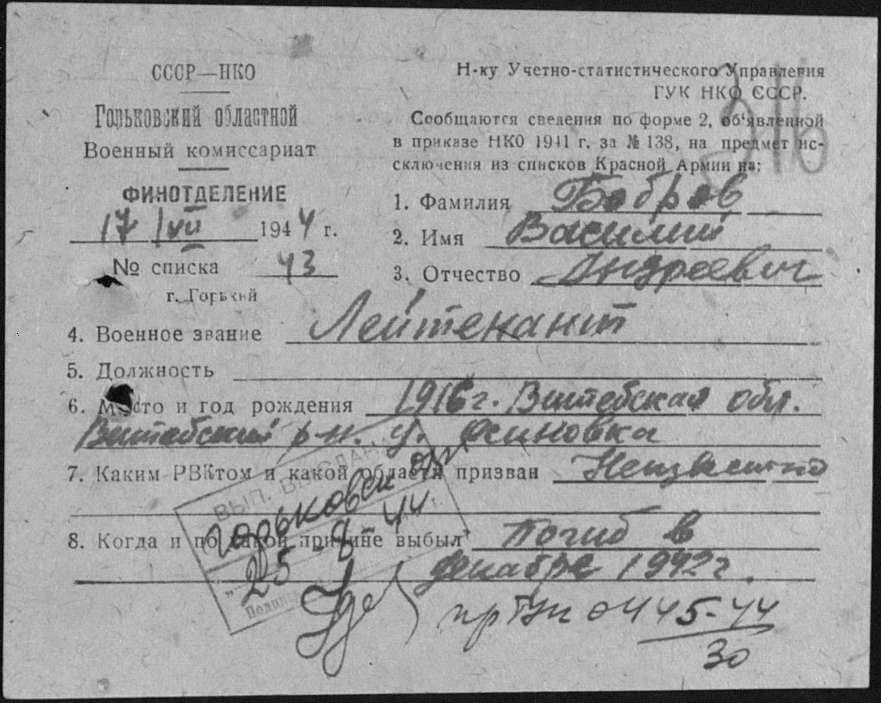 СССР—НКО
Горьковский областной
Военный комиссариат
ФИНОТДЕЛЕНИЕ
17 VII 1944 г.
№ списка 43
г. Горький
Н-ку Учетно-статистического Управления
ГУК НКО СССР.
Сообщаются сведения по форме 2, об'явленной
в приказе НКО 1941 г. за № 138, на предмет ис-
сключения из списков Красной Армии на:
1. Фамилия Бобров
2. Имя Василий
3. Отчество Андреевич
4. Военное звание Лейтенант
5. Должность
6. Место и год рождения 1916 г. Витебская обл.
Витебский р-н. д. Осиновка
7. Каким РВКтом и какой области призван Неизвестно
8. Когда и по какой причине выбыл Погиб в
декабре 1942 г.
ВЫП. ВЫСЛАН
Горьковск
25 8 44
445-44
30